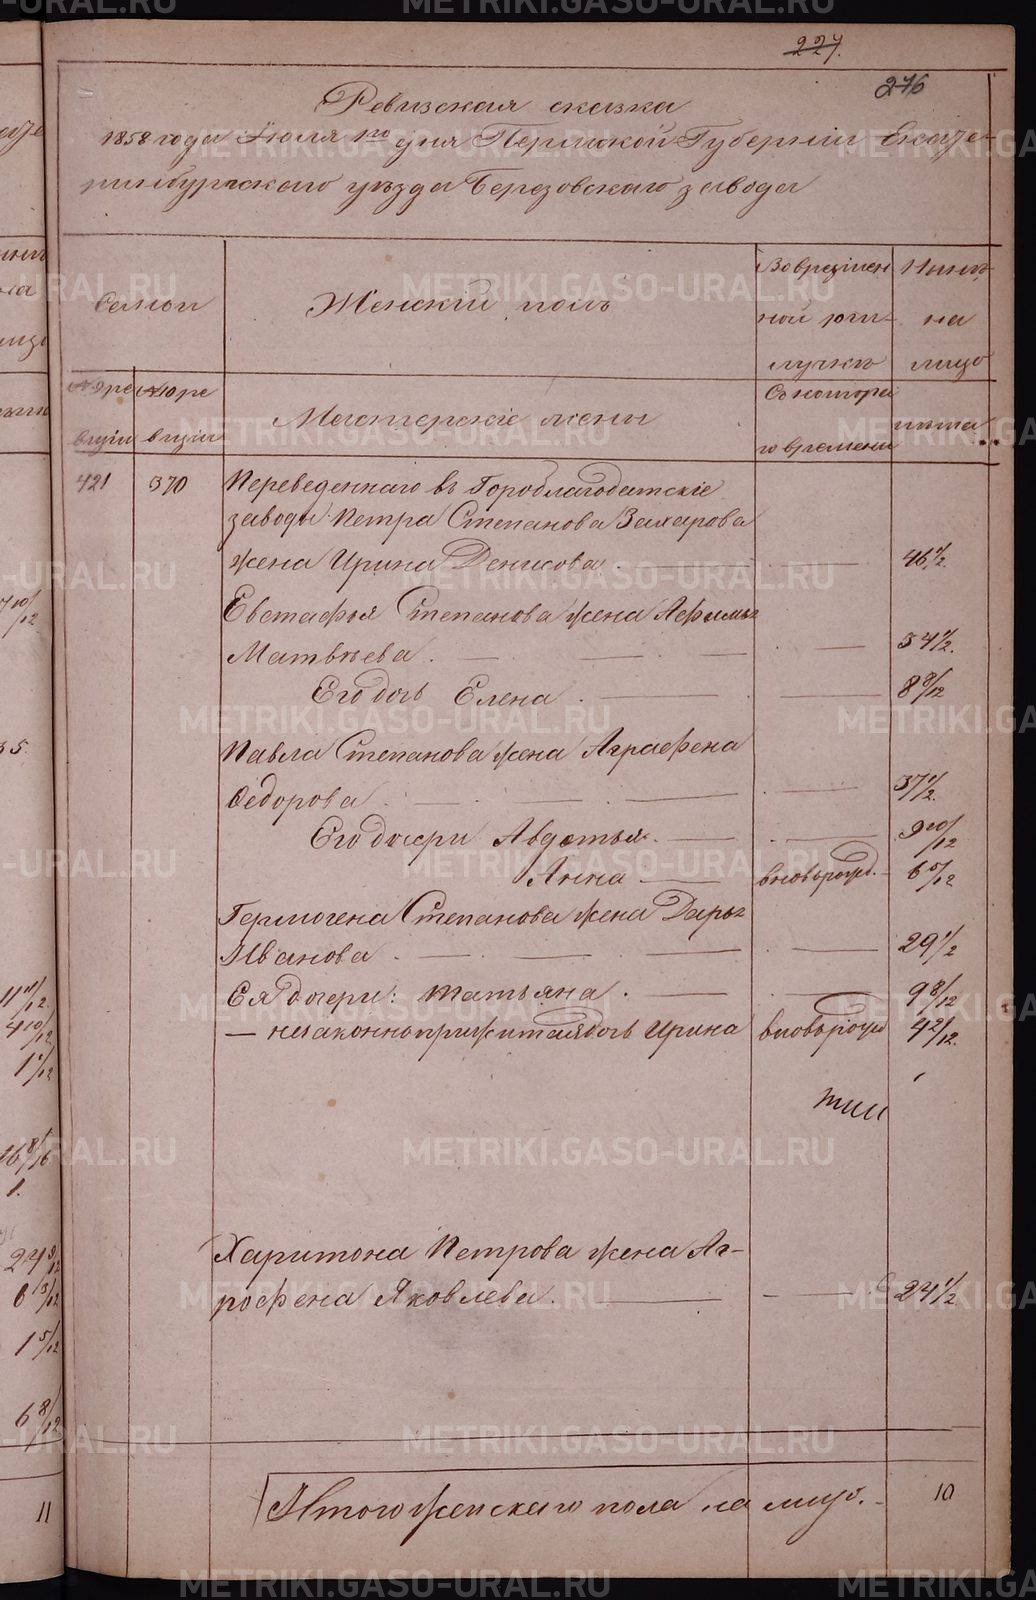 227.
276
Ревизская сказка
1858 года Июля 1го дня Пермской Губернiи Екате-
ринбургскаго уѣзда Березовскаго завода
Семьи
Женскiй полъ
Во времен
ной отлу
лучкѣ
Нынѣ
на
лицо
№ 9 ре
визiи
№ 10 ре
визiи
Мастерскiе жены
Съ котора
го времени
лѣта
421 370 Переведеннаго въ Гороблагодатскiе
заводы Петра Степанова Захарова
жена Ирина Денисова. 46 1/2.
Евстафья Степанова жена Афимья
Матвѣева. 34 1/2.
Его дочь Елена 8 8/12
Павла Степанова жена Аграфена
Федорова 37 1/2.
Его дочери Авдотья. 9 10/12
Анна вновьрожд. 6 5/12
Гермогена Степанова жена Дарья
Иванова. 29 1/2
Ея дочери: Татьяна. 9 8/12
— незаконноприжитая дочь Ирина вновьрожд 4 2/12.
Харитона Петрова жена Аг-
рофена Яковлева. 24 1/2
Итого женскаго пола на лицо. 10
35.
11 11/12.
4 10/12
1.
24 9/12
1 5/12
6 8/12
11
METRIKI.GASO-URAL.RU